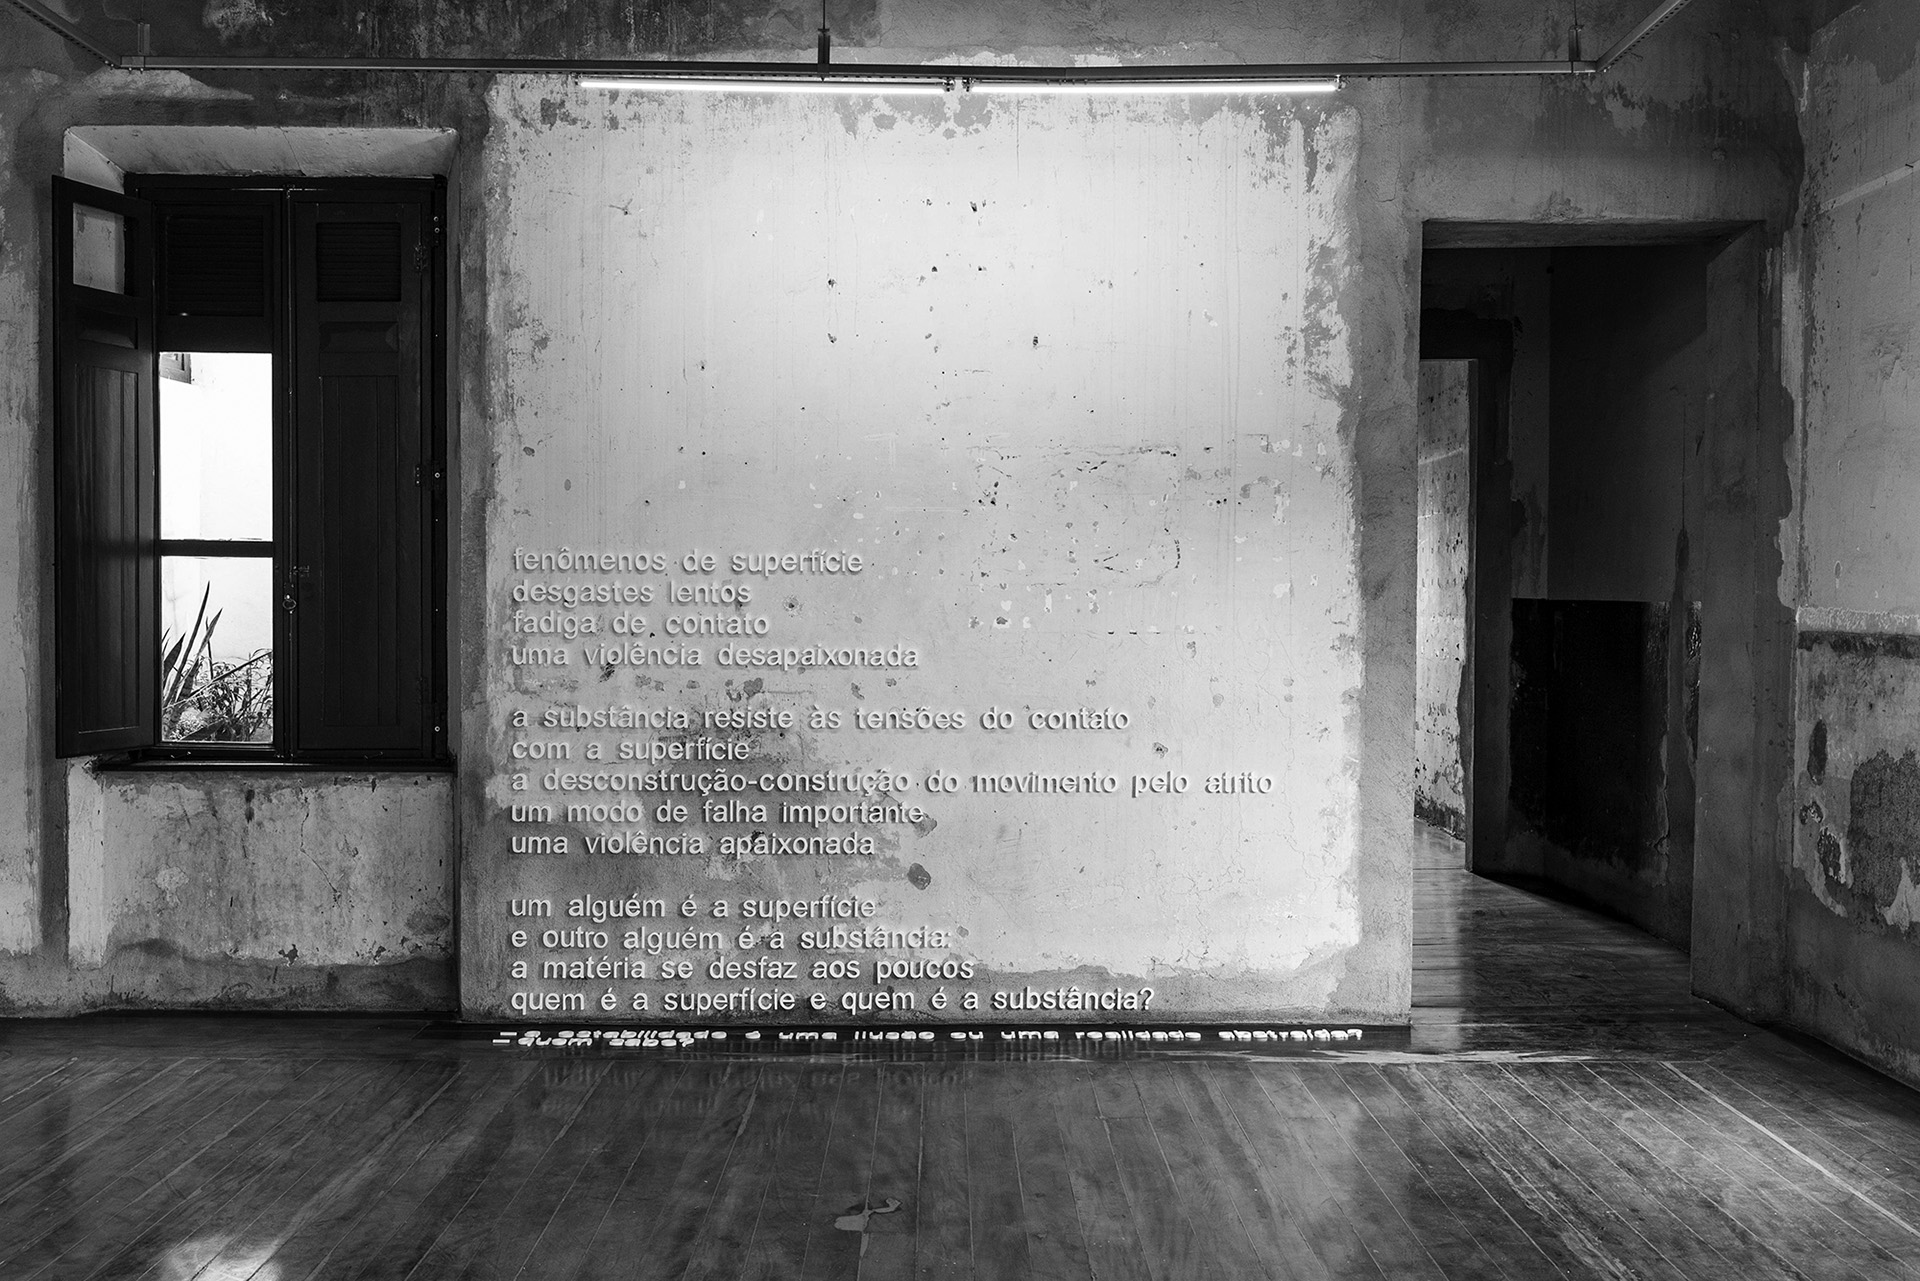 fenômenos de superfície
desgastes lentos
fadiga de contato
uma violência desapaixonada
a substância resiste às tensões do contato
com a superfície
a desconstrução-construção do movimento pelo atrito
um modo de falha importante
uma violência apaixonada
um alguém é a superfície
e outro alguém é a substância:
a matéria se desfaz aos poucos
quem é a superfície e quem é a substância?
– a estabilidade é uma ilusão ou uma realidade abstraída?
– quem sabe?